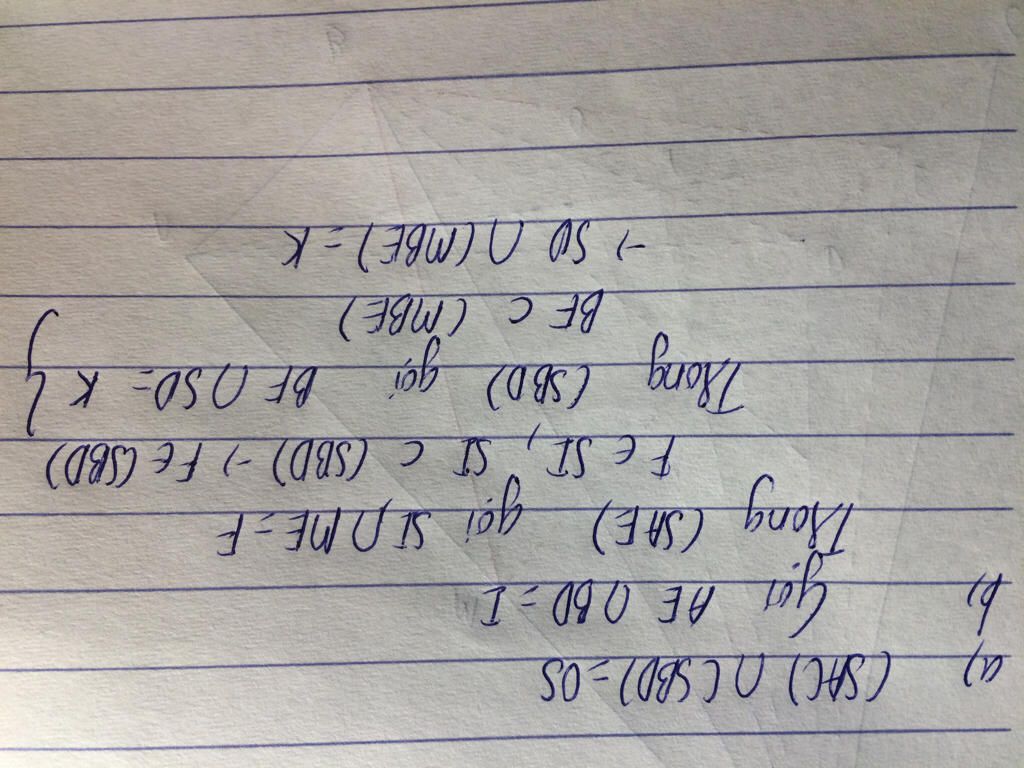 a) (SAC) ∩ (SBD) = OS
b) Gọi AE ∩ BD = I
Trong (SAE) gọi SI ∩ ME = F
F ∈ SI, SI ⊂ (SBD) → F ∈ (SBD)
Trong (SBD) gọi BF ∩ SD = K }
BF ⊂ (MBE)
→ SD ∩ (MBE) = K